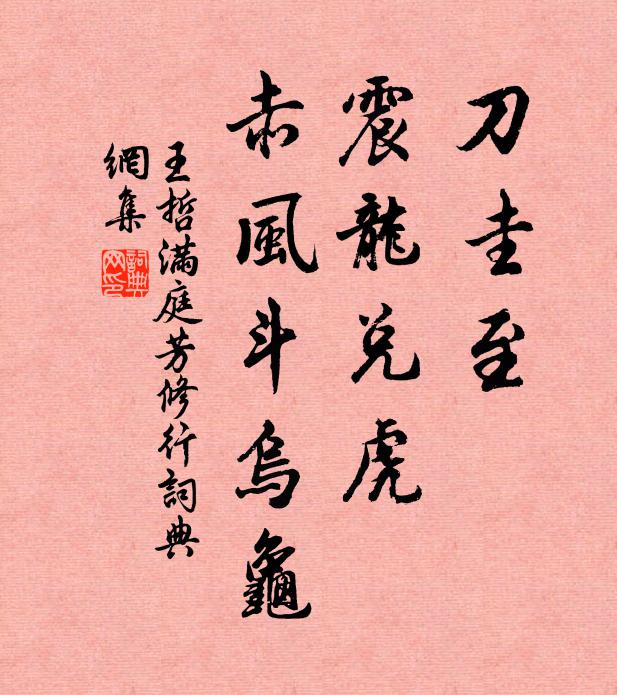 刀圭至
震龍兑虎
赤風斗烏龜
王哲滿庭芳修行詞典
網集
詞典網印